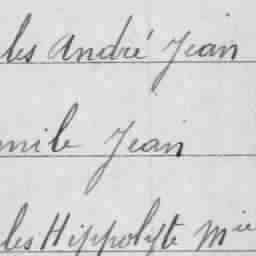 les André Jean
mile Jean
les Hippolyte Mie